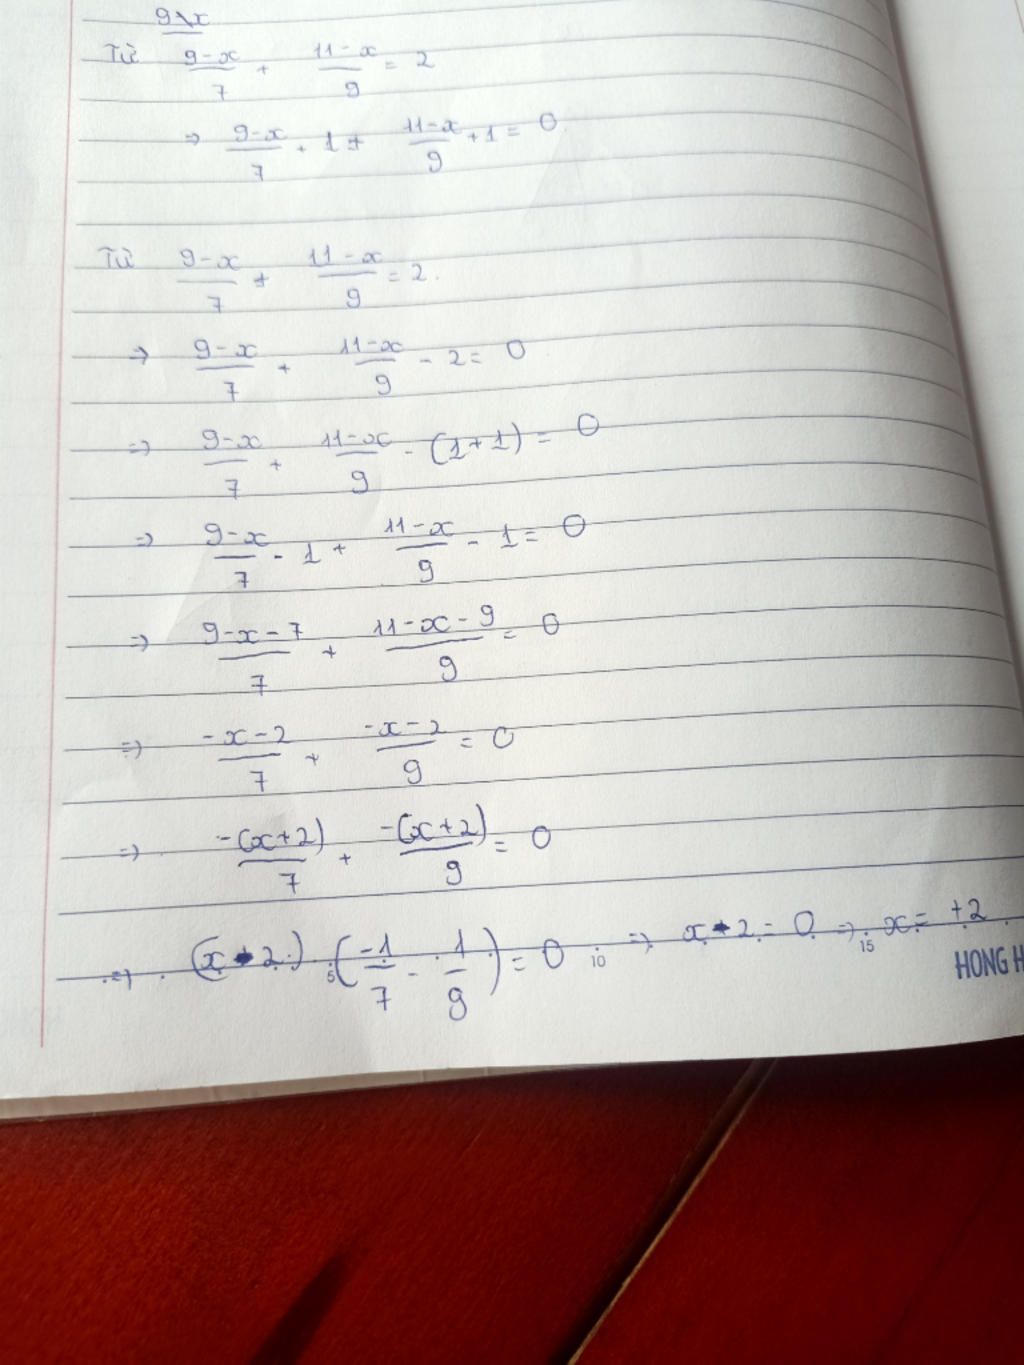 9-x
Từ 9-x/7 + 11-x/9 = 2
⇒ 9-x/7 + 1 + 11-x/9 + 1 = 0
Từ 9-x/7 + 11-x/9 = 2.
⇒ 9-x/7 + 11-x/9 - 2 = 0
⇒ 9-x/7 + 11-x/9 - (1+1) = 0
⇒ 9-x/7 - 1 + 11-x/9 - 1 = 0
⇒ 9-x-7/7 + 11-x-9/9 = 0
⇒ -x-2/7 + -x-2/9 = 0
⇒ -(x+2)/7 + -(x+2)/9 = 0
⇒ (x-2) (-1/7 - 1/9) = 0 ⇒ x-2 = 0 ⇒ x = +2
5 10 15
HONG H